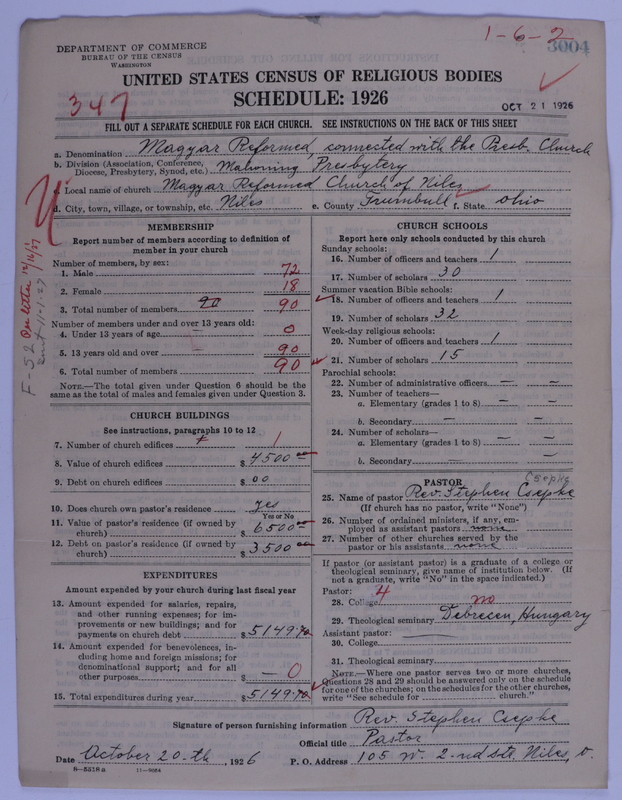 1-6-2
3004
DEPARTMENT OF COMMERCE
BUREAU OF THE CENSUS
WASHINGTON
UNITED STATES CENSUS OF RELIGIOUS BODIES
SCHEDULE: 1926
347
OCT 21 1926
FILL OUT A SEPARATE SCHEDULE FOR EACH CHURCH. SEE INSTRUCTIONS ON THE BACK OF THIS SHEET
a. Denomination Magyar Reformed, connected with the Presb. Church
b. Division (Association, Conference, Diocese, Presbytery, Synod, etc.) Mahoning Presbytery
Local name of church Magyar Reformed Church of Niles
d. City, town, village, or township, etc. Niles e. County Trumbull f. State Ohio
MEMBERSHIP
Report number of members according to definition of
member in your church
Number of members, by sex:
1. Male 72
2. Female 18
3. Total number of members 90 90
Number of members under and over 13 years old:
4. Under 13 years of age 0
5. 13 years old and over 90
6. Total number of members 90
NOTE.—The total given under Question 6 should be
same as the total of males and females given under Question 3.
CHURCH BUILDINGS
See instructions, paragraphs 10 to 12
7. Number of church edifices 1
8. Value of church edifices $ 4500 00
9. Debt on church edifices $ 00
10. Does church own pastor's residence yes
Yes or No
11. Value of pastor's residence (if owned by
church) $ 6500 00
12. Debt on pastor's residence (if owned by
church) $ 3500 00
EXPENDITURES
Amount expended by your church during last fiscal year
13. Amount expended for salaries, repairs,
and other running expenses; for im-
provements or new buildings; and for
payments on church debt $ 5149.70
14. Amount expended for benevolences, in-
cluding home and foreign missions; for
denominational support; and for all
other purposes $ — 0
15. Total expenditures during year $ 5149.70
CHURCH SCHOOLS
Report here only schools conducted by this church
Sunday schools:
16. Number of officers and teachers 1
17. Number of scholars 30
Summer vacation Bible schools:
18. Number of officers and teachers 1
19. Number of scholars 32
Week-day religious schools:
20. Number of officers and teachers 1
21. Number of scholars 15
Parochial schools:
22. Number of administrative officers —
23. Number of teachers—
a. Elementary (grades 1 to 8) —
b. Secondary —
24. Number of scholars—
a. Elementary (grades 1 to 8) —
b. Secondary —
PASTOR
Csepke
25. Name of pastor Rev. Stephen Csepke
(If church has no pastor, write "None")
26. Number of ordained ministers, if any, em-
ployed as assistant pastors none
27. Number of other churches served by the
pastor or his assistants none
If pastor (or assistant pastor) is a graduate of a college or
theological seminary, give name of institution below. (If
not a graduate, write "No" in the space indicated.)
Pastor: 4
28. College no
29. Theological seminary Debrecen, Hungary
Assistant pastor:
30. College
31. Theological seminary
NOTE.—Where one pastor serves two or more churches,
Questions 28 and 29 should be answered only on the schedule
for one of the churches; on the schedules for the other churches,
write "See schedule for church."
Signature of person furnishing information Rev. Stephen Csepke
Official title Pastor
Date October 20-th, 1926 P. O. Address 105 W. 2-nd str. Niles, O.
8—5518a 11—9024